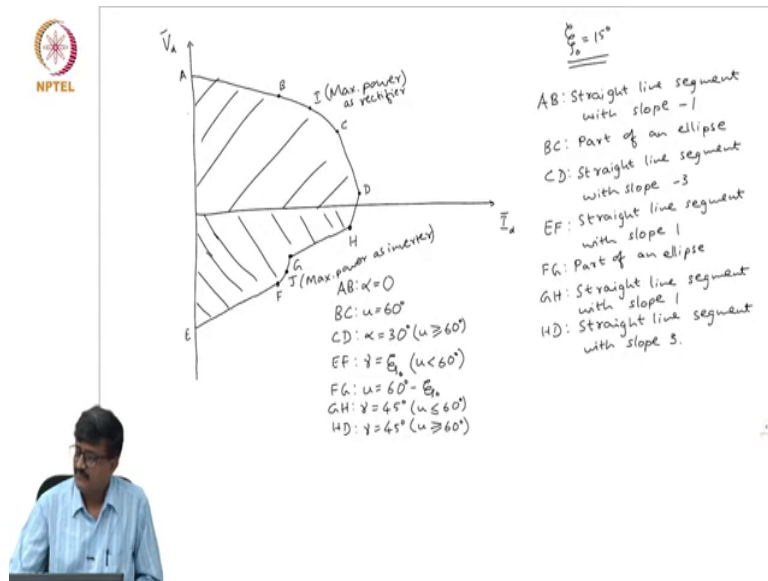 NPTEL
V̄d
A
B
I (Max. power)
as rectifier
C
D
Īd
H
G
J (Max. power as inverter)
F
E
AB: α=0
BC: u=60°
CD: α=30° (u≥60°)
EF: γ=ξ₀ (u<60°)
FG: u=60°-ξ₀
GH: γ=45° (u≤60°)
HD: γ=45° (u≥60°)
ξ
ξ₀=15°
AB: Straight line segment
with slope -1
BC: Part of an ellipse
CD: Straight line segment
with slope -3
EF: Straight line segment
with slope 1
FG: Part of an ellipse
GH: Straight line segment
with slope 1
HD: Straight line segment
with slope 3.